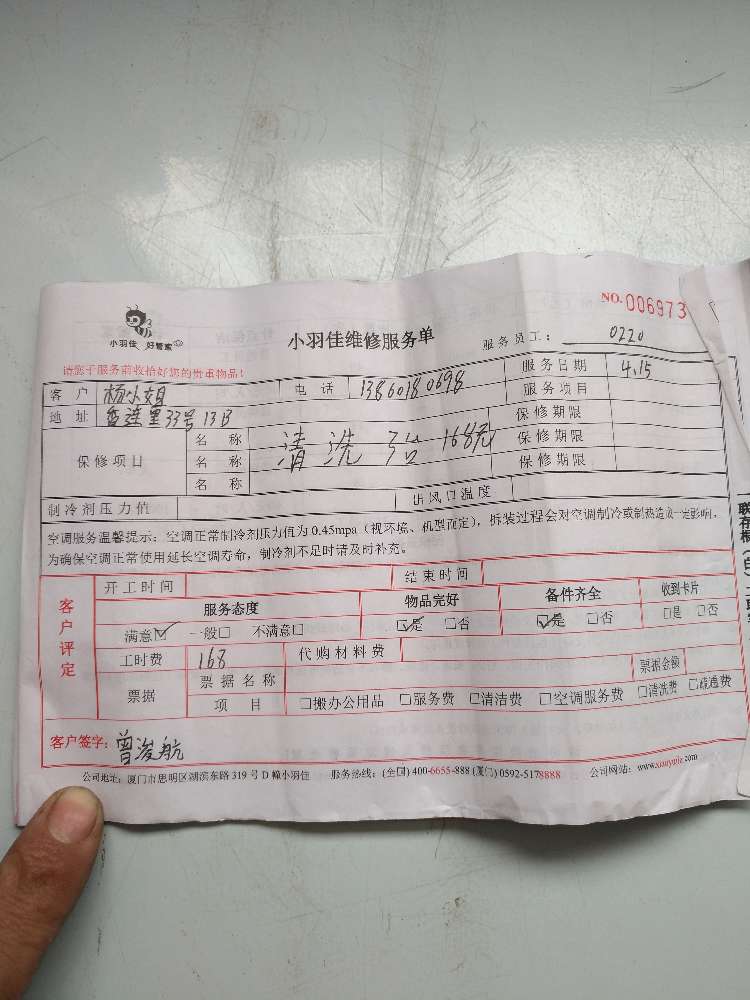 NO. 006973
小羽佳 好管家
小羽佳维修服务单
服务员工： 0220
请您于服务前收拾好您的贵重物品！
客 户 杨小姐 电 话 13860180698 服务日期 4.15
地 址 香莲里33号13B 服务项目
保修项目 名 称 保修期限
清洗 168元
名 称 保修期限
名 称 保修期限
制冷剂压力值 出风口温度
空调服务温馨提示：空调正常制冷剂压力值为 0.45mpa（视环境、机型而定），拆装过程会对空调制冷或制热造成一定影响，
为确保空调正常使用延长空调寿命，制冷剂不足时请及时补充。
客户评定
开工时间 结束时间
服务态度 物品完好 备件齐全 收到卡片
满意☑ 一般□ 不满意□ ☑是 □否 ☑是 □否 □是 □否
工时费 168 代购材料费
票据 票据名称 票据金额
项 目 □搬办公用品 □服务费 □清洁费 □空调服务费 □清洗费 □疏通费
客户签字：曾浚航
公司地址：厦门市思明区湖滨东路 319 号 D 幢小羽佳 服务热线：(全国) 400-6655-888 (厦门) 0592-5178888 公司网站：www.xiaoyujia.com